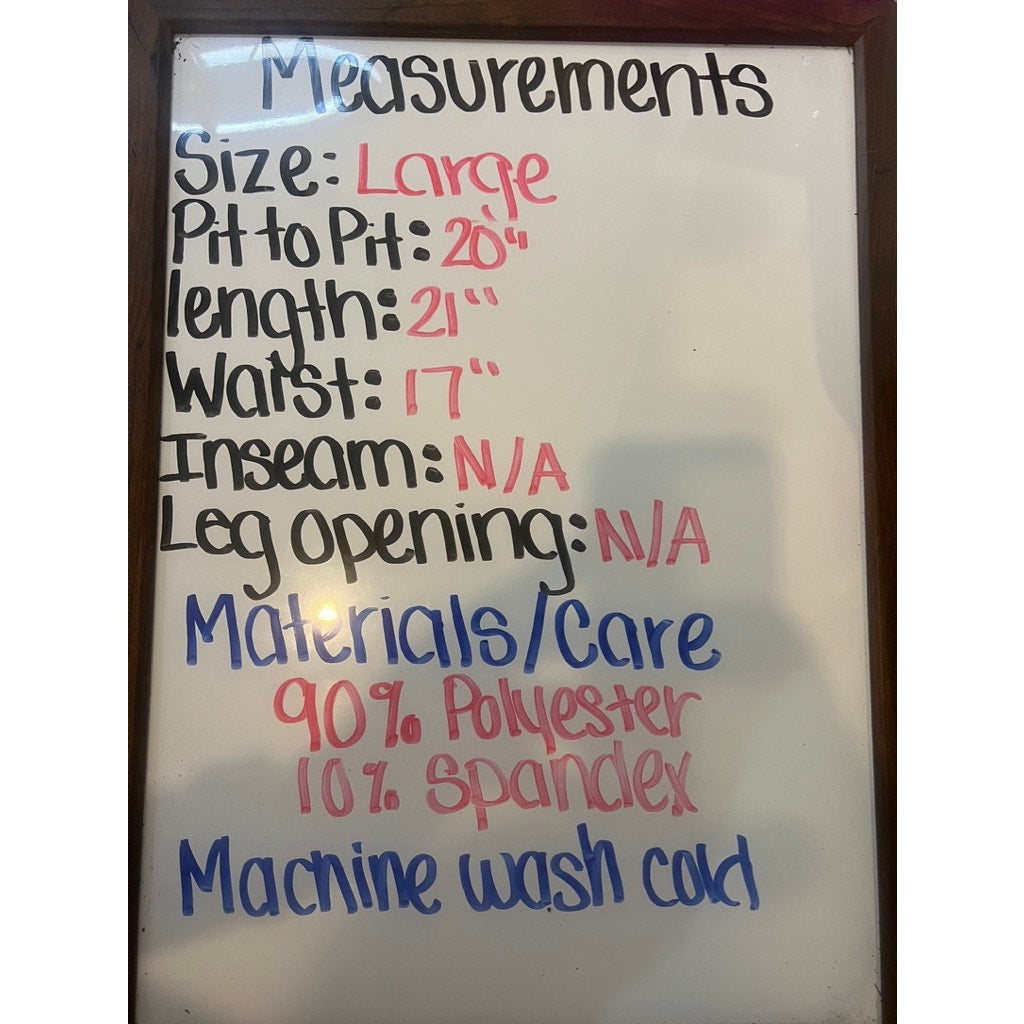 Measurements
Size: Large
Pit to Pit: 20"
length: 21"
Waist: 17"
Inseam: N/A
Leg opening: N/A
Materials/Care
90% Polyester
10% Spandex
Machine wash cold